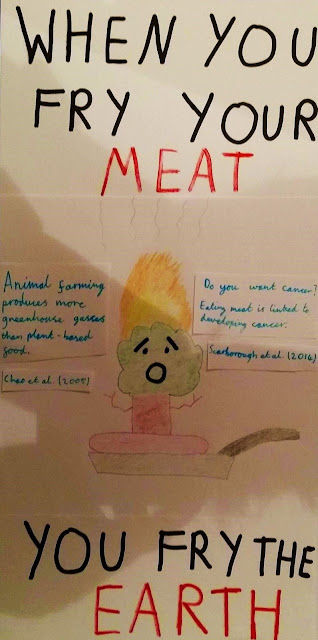 WHEN YOU
FRY YOUR
MEAT
Animal farming
produces more
greenhouse gasses
then plant-based
food.
Chao et al. (2005)
Do you want cancer?
Eating meat is linked to
developing cancer.
Scarborough et al. (2014)
YOU FRY THE
EARTH